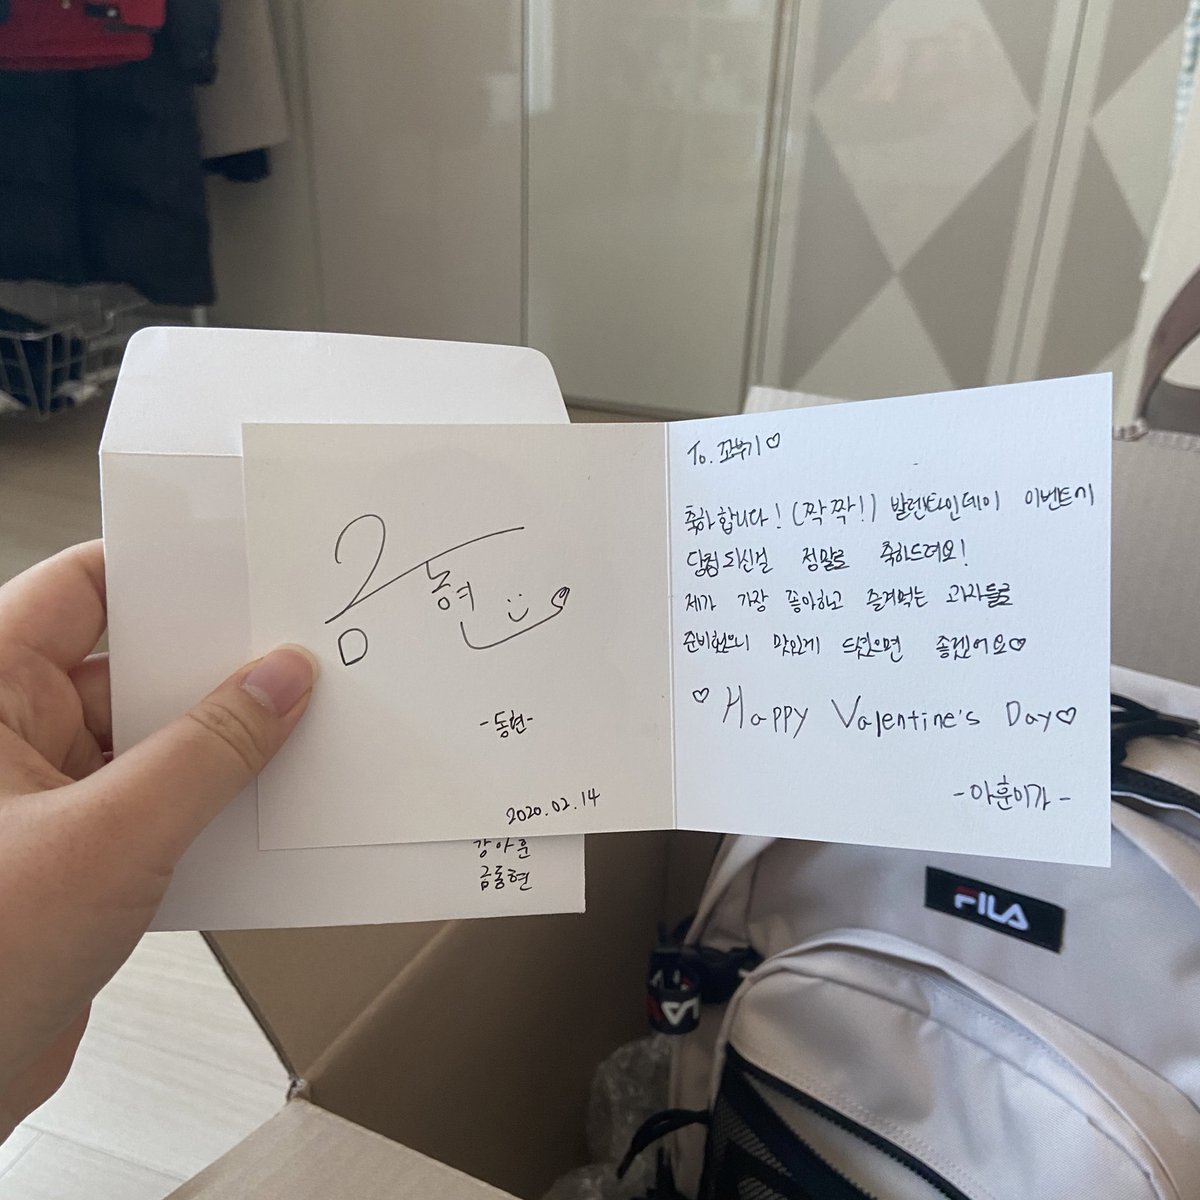 금동현
-동현-
2020.02.14
강아훈
금동현
To. 꼬부기♡
축하합니다! (짝짝!) 발렌타인데이 이벤트에
당첨되신걸 정말로 축하드려요!
제가 가장 좋아하고 즐겨먹는 과자들로
준비했으니 맛있게 드셨으면 좋겠어요♡
♡ Happy Valentine's Day♡
-아훈이가-
FILA